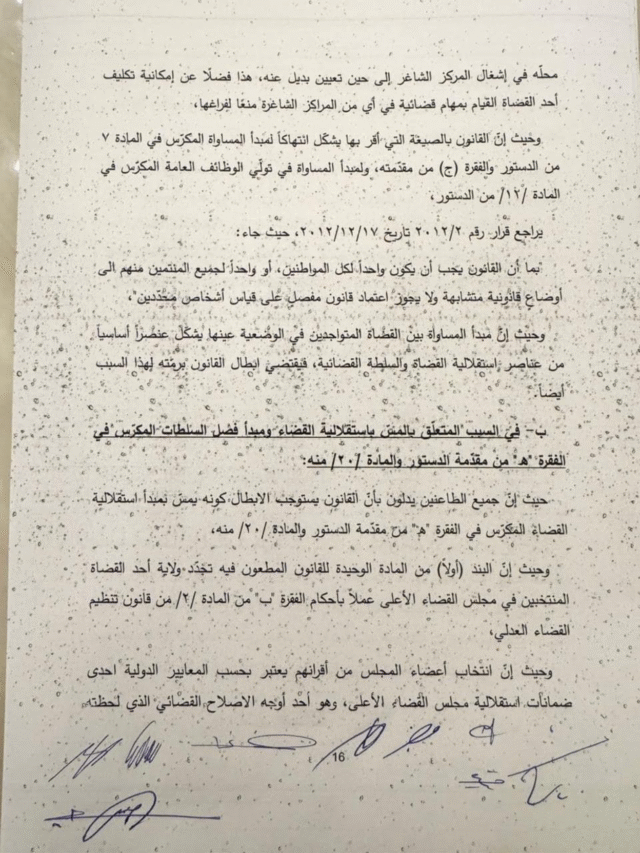 محلّه في إشغال المركز الشاغر إلى حين تعيين بديل عنه، هذا فضلًا عن إمكانية تكليف
أحد القضاة القيام بمهام قضائية في أي من المراكز الشاغرة منعًا لفراغها،
وحيث إنّ القانون بالصيغة التي أقر بها يشكّل انتهاكاً لمبدأ المساواة المكرّس في المادة ٧
من الدستور والفقرة (ج) من مقدّمته، ولمبدأ المساواة في تولّي الوظائف العامة المكرّس في
المادة /١٢/ من الدستور،
يراجع قرار رقم ٢٠١٢/٢ تاريخ ٢٠١٢/١٢/١٧، حيث جاء:
"بما أن القانون يجب أن يكون واحداً لكل المواطنين، أو واحداً لجميع المنتمين منهم الى
أوضاع قانونية متشابهة ولا يجوز اعتماد قانون مفصل على قياس أشخاص محدّدين"،
وحيث إنّ مبدأ المساواة بين القضاة المتواجدين في الوضعية عينها يشكّل عنصراً أساسياً
من عناصر استقلالية القضاة والسلطة القضائية، فيقتضي ابطال القانون برمّته لهذا السبب
أيضاً.
ب- في السبب المتعلّق بالمسّ باستقلالية القضاء ومبدأ فصل السلطات المكرّس في
الفقرة "هـ" من مقدّمة الدستور والمادة /٢٠/ منه:
حيث إنّ جميع الطاعنين يدلون بأنّ القانون يستوجب الابطال كونه يمسّ بمبدأ استقلالية
القضاء المكرّس في الفقرة "هـ" من مقدّمة الدستور والمادة /٢٠/ منه،
وحيث إنّ البند (أولاً) من المادة الوحيدة للقانون المطعون فيه تجدّد ولاية أحد القضاة
المنتخبين في مجلس القضاء الأعلى عملاً بأحكام الفقرة "ب" من المادة /٢/ من قانون تنظيم
القضاء العدلي،
وحيث إنّ انتخاب أعضاء المجلس من أقرانهم يعتبر بحسب المعايير الدولية احدى
ضمانات استقلالية مجلس القضاء الأعلى، وهو أحد أوجه الاصلاح القضائي الذي لحظته
16